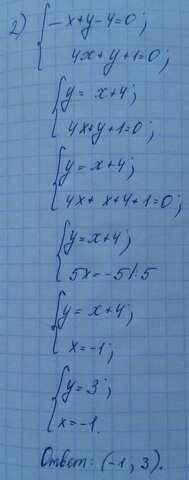 2) { -x+y-4=0;
4x+y+1=0;
{ y = x+4;
4x+y+1=0;
{ y=x+4;
4x+x+4+1=0;
{ y=x+4;
5x=-5 |:5
{ y=x+4;
x=-1;
{ y=3;
x=-1.
Ответ: (-1; 3).